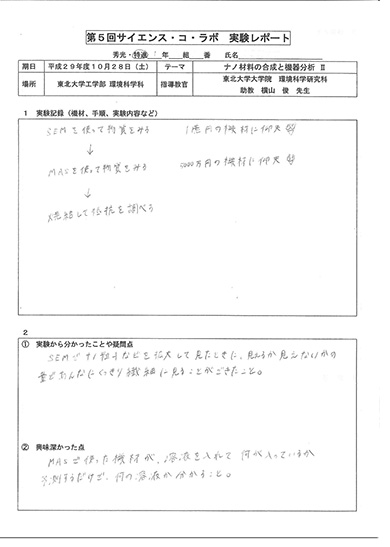 第5回サイエンス・コ・ラボ 実験レポート
秀光・特進 年 組 番 氏名
期日 平成29年度10月28日(土) テーマ ナノ材料の合成と機器分析 Ⅱ
場所 東北大学工学部 環境科学科 指導教官 東北大学大学院 環境科学研究科
助教 横山 俊 先生
1 実験記録(機材、手順、実験内容など)
SEMを使って物質をみる 1億円の機材に仰天
↓
MASを使って物質をみる 5000万円の機材に仰天
↓
焼結して抵抗を調べる
2
① 実験から分かったことや疑問点
SEMでナノ粒子などを拡大して見たときに、見えるか見えないかの
量であんなにくっきり繊細に見ることができたこと。
② 興味深かった点
MASで使った機材が、溶液を入れて何が入っているか
測るだけで、何の溶液か分かること。